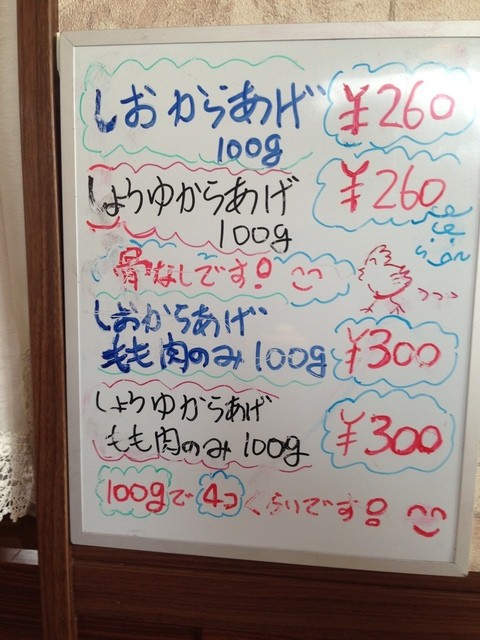 しおからあげ ¥260
100g
しょうゆからあげ ¥260
100g
骨なしです!
しおからあげ
もも肉のみ 100g ¥300
しょうゆからあげ
もも肉のみ 100g ¥300
100gで4コくらいです!